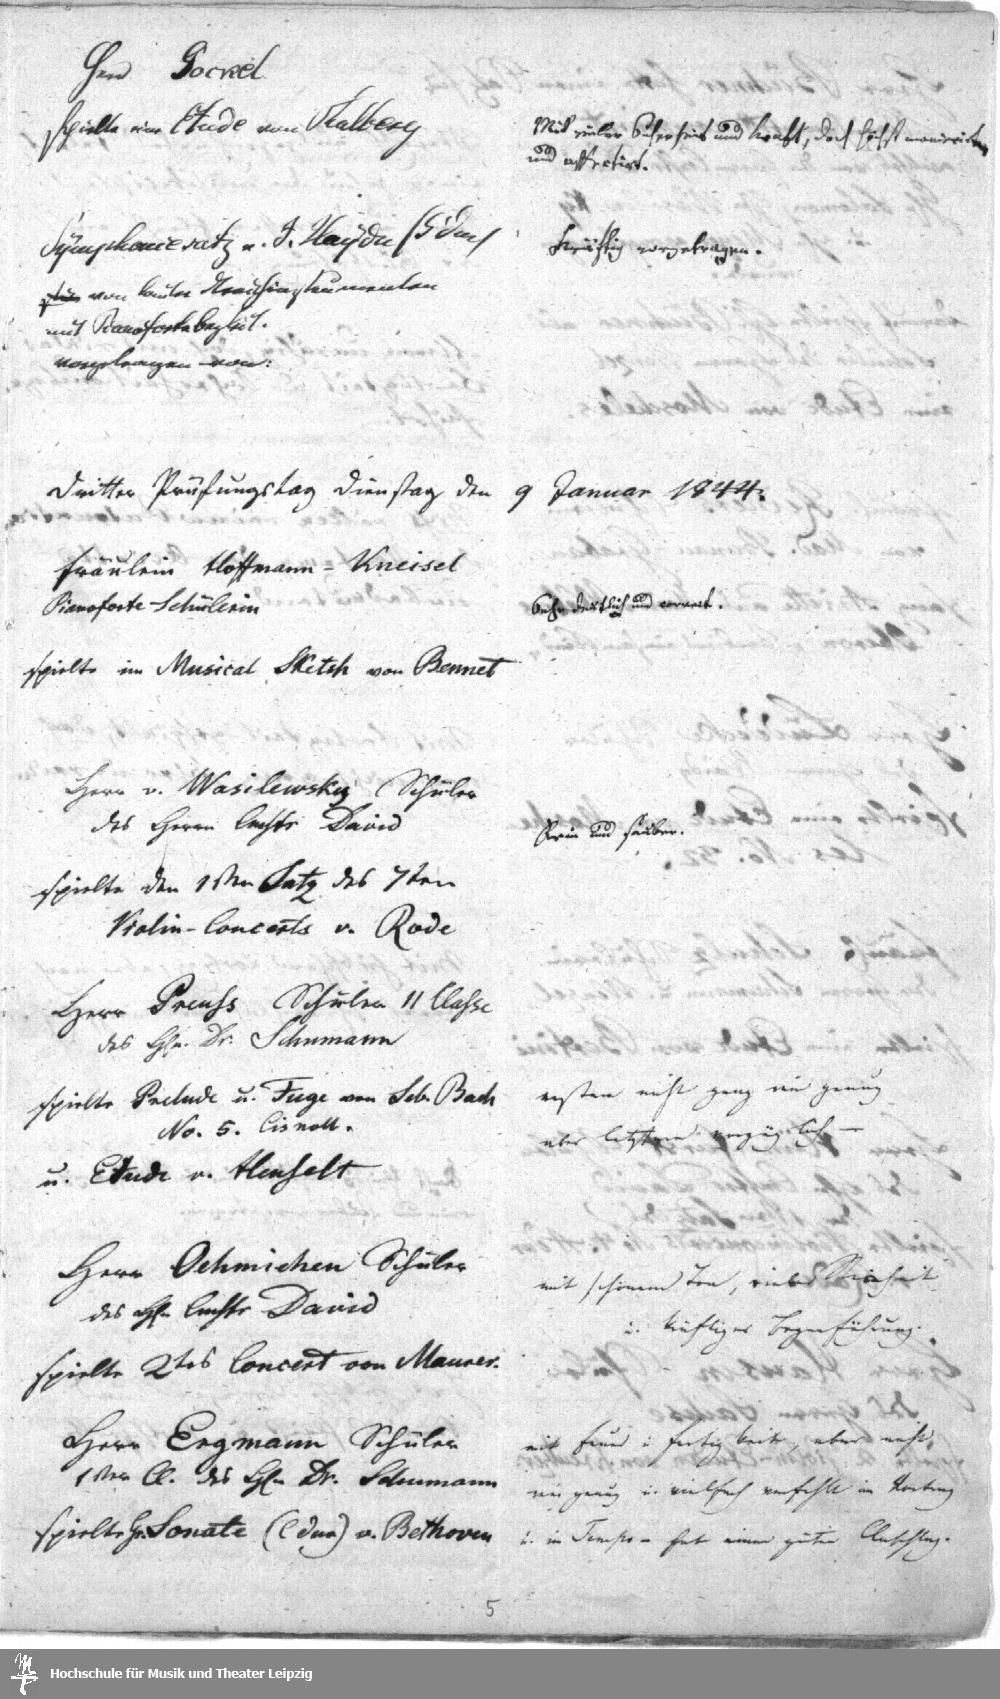 Herr Gockel
spielte eine Etude von Thalberg
Mit vieler Sicherheit und Kraft, doch höchst manierirt
und affectirt.
Symphoniesatz v. J. Haydn (G dur)
Kräftig vorgetragen.
von lauter Streichinstrumenten
mit Pianofortebegleit.
vorgetragen von:
Dritter Prüfungstag Dienstag den 9 Januar 1844.
Fräulein Hoffmann-Kneisel
Pianoforte-Schülerin
Sehr deutlich und correct.
spielte im Musical Sketch von Bennet
Herr v. Wasilewsky Schüler
des Herrn David
Rein und sauber.
spielte den 1sten Satz des 7ten
Violin-Concerts v. Rode
Herr Preuss Schüler II Classe
des Hn. Dr. Schumann
spielte Prelude u. Fuge von Seb. Bach
No. 5. Cis moll.
erstere nicht ganz rein genug
aber letztere vorzüglich —
u. Etude v. Henselt
Herr Oehmichen Schüler
des Hn. David
mit schönem Ton, vieler Reinheit
u. kräftiger Bogenführung.
spielte 2tes Concert von Maurer.
Herr Ergmann Schüler
1ster Cl. des Hn Dr. Schumann
mit Feuer u Fertigkeit, aber nicht
rein genug u. vielfach verfehlt im Vortrag
spielte Gr. Sonate (C dur) v. Bethoven
u. im Tempo - hat einen guten Anschlag.
5
Hochschule für Musik und Theater Leipzig